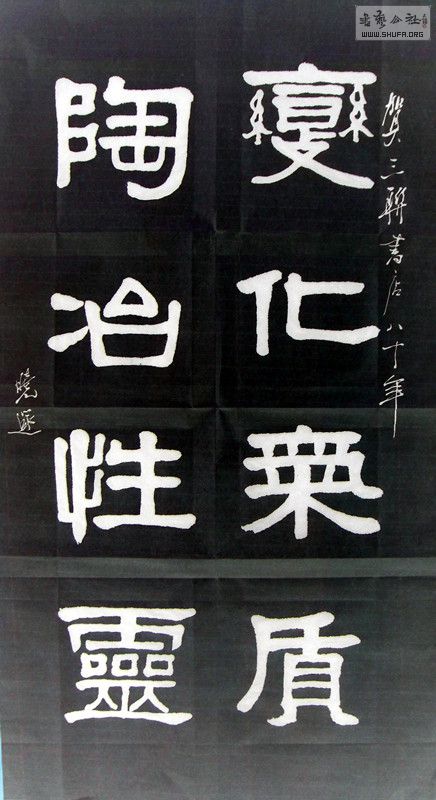 書藝公社
WWW.SHUFA.ORG
賀三聯書店八十年
變化氣質
陶冶性靈
曉